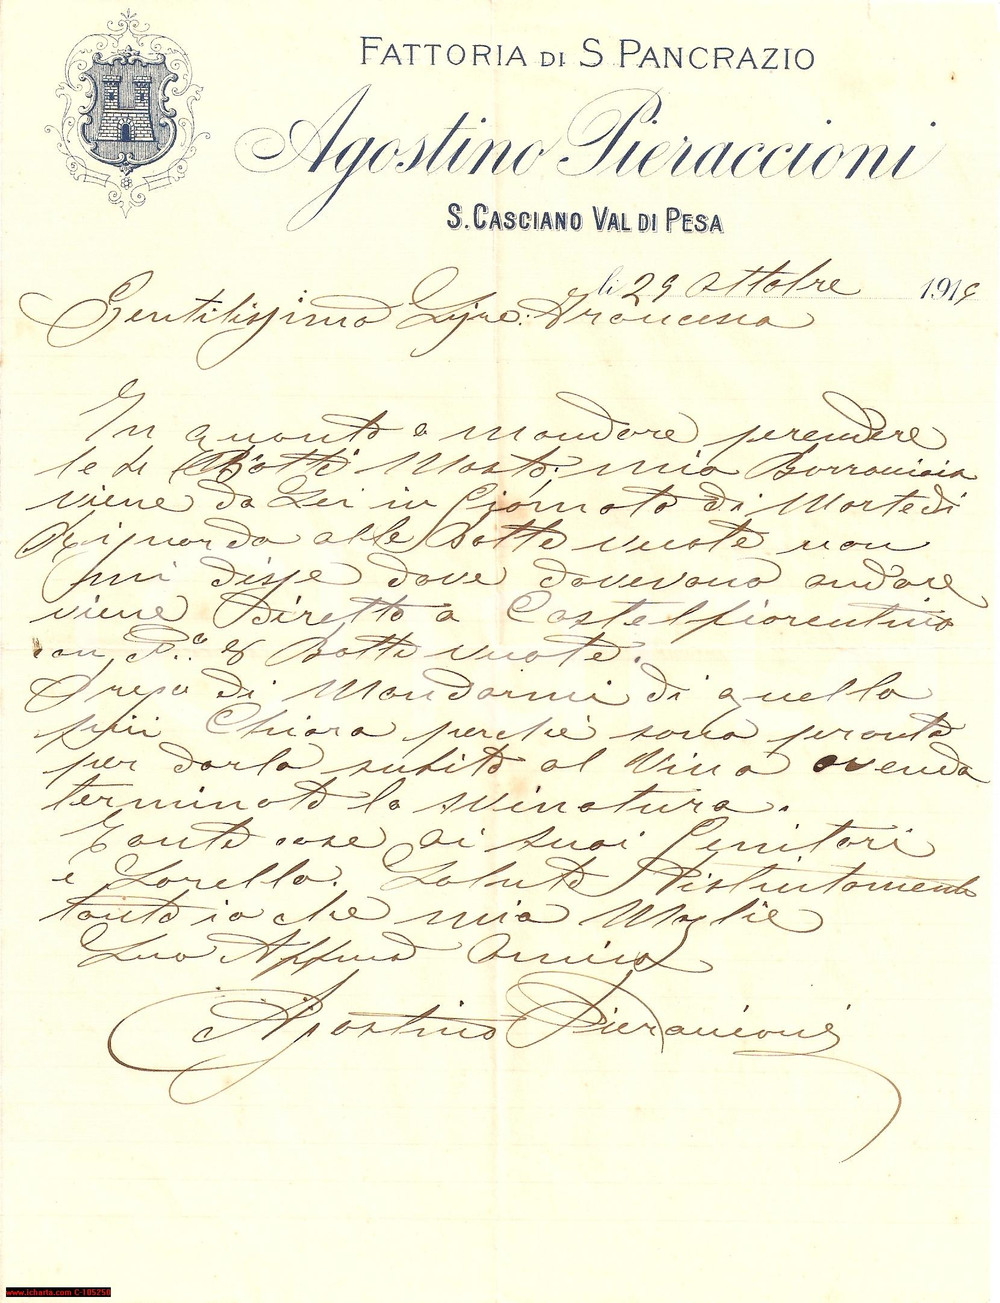 FATTORIA DI S PANCRAZIO
Agostino Pieraccioni
S. CASCIANO VAL DI PESA
li 29 Ottobre 1919
Gentilissimo Sigre. Francesco
In quanto a mandare perendere
le di Botti Mosto. mio Borrociaio
viene da Lei in Giornata di Martedi
Riguardo alle Botte vuote non
mi disse dove dovevano andare
viene Diretto a Castelfiorentino
con 8 Botti vuote.
Prego di Mandarmi di quello
più Chiaro perchè sono pronto
per darlo subito al Vino avendo
terminato la svinatura.
Tante cose ai suoi Genitori
e Sorella. Saluto Distintamente
tanto io che mia Moglie
Suo Affmo Amico
Agostino Pieraccioni
www.icharta.com C-105250